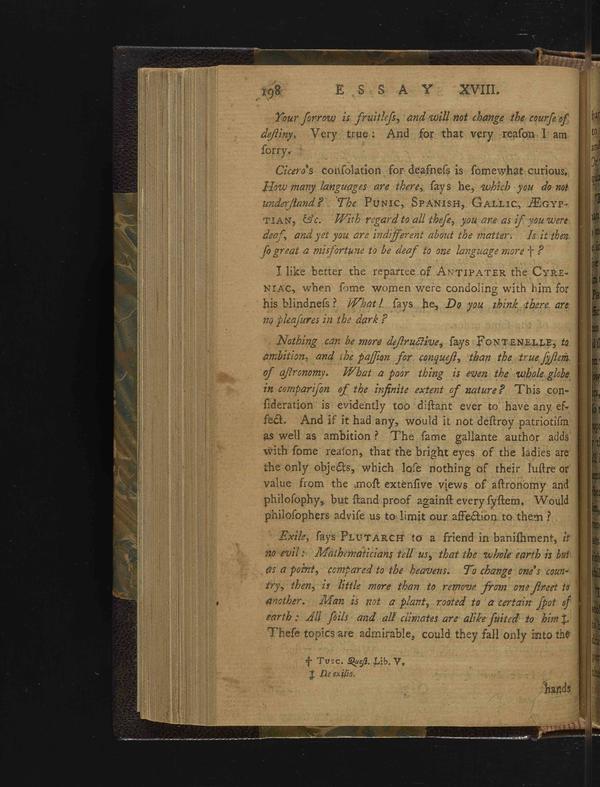 198 ESSAY XVIII.
Your ſorrow is fruitleſs, and will not change the courſe of
deſtiny. Very true: And for that very reaſon I am
ſorry.
Cicero's conſolation for deafneſs is ſomewhat curious.
How many languages are there, ſays he, which you do not
underſtand? The PUNIC, SPANISH, GALLIC, ÆGYP-
TIAN, &c. With regard to all theſe, you are as if you were
deaf, and yet you are indifferent about the matter. Is it then
ſo great a misfortune to be deaf to one language more † ?
I like better the repartee of ANTIPATER the CYRE-
NIAC, when ſome women were condoling with him for
his blindneſs? What! ſays he, Do you think there are
no pleaſures in the dark?
Nothing can be more deſtructive, ſays FONTENELLE, to
ambition, and the paſſion for conqueſt, than the true ſyſtem
of aſtronomy. What a poor thing is even the whole globe
in compariſon of the infinite extent of nature? This con-
ſideration is evidently too diſtant ever to have any ef-
fect. And if it had any, would it not deſtroy patriotiſm
as well as ambition? The ſame gallante author adds
with ſome reaſon, that the bright eyes of the ladies are
the only objects, which loſe nothing of their luſtre or
value from the moſt extenſive views of aſtronomy and
philoſophy, but ſtand proof againſt every ſyſtem. Would
philoſophers adviſe us to limit our affection to them?
Exile, ſays PLUTARCH to a friend in baniſhment, is
no evil: Mathematicians tell us, that the whole earth is but
as a point, compared to the heavens. To change one's coun-
try, then, is little more than to remove from one ſtreet to
another. Man is not a plant, rooted to a certain ſpot of
earth: All ſoils and all climates are alike ſuited to him ‡.
Theſe topics are admirable, could they fall only into the
† Tuſc. Quæſt. Lib. V.
‡ De exilio.
hands